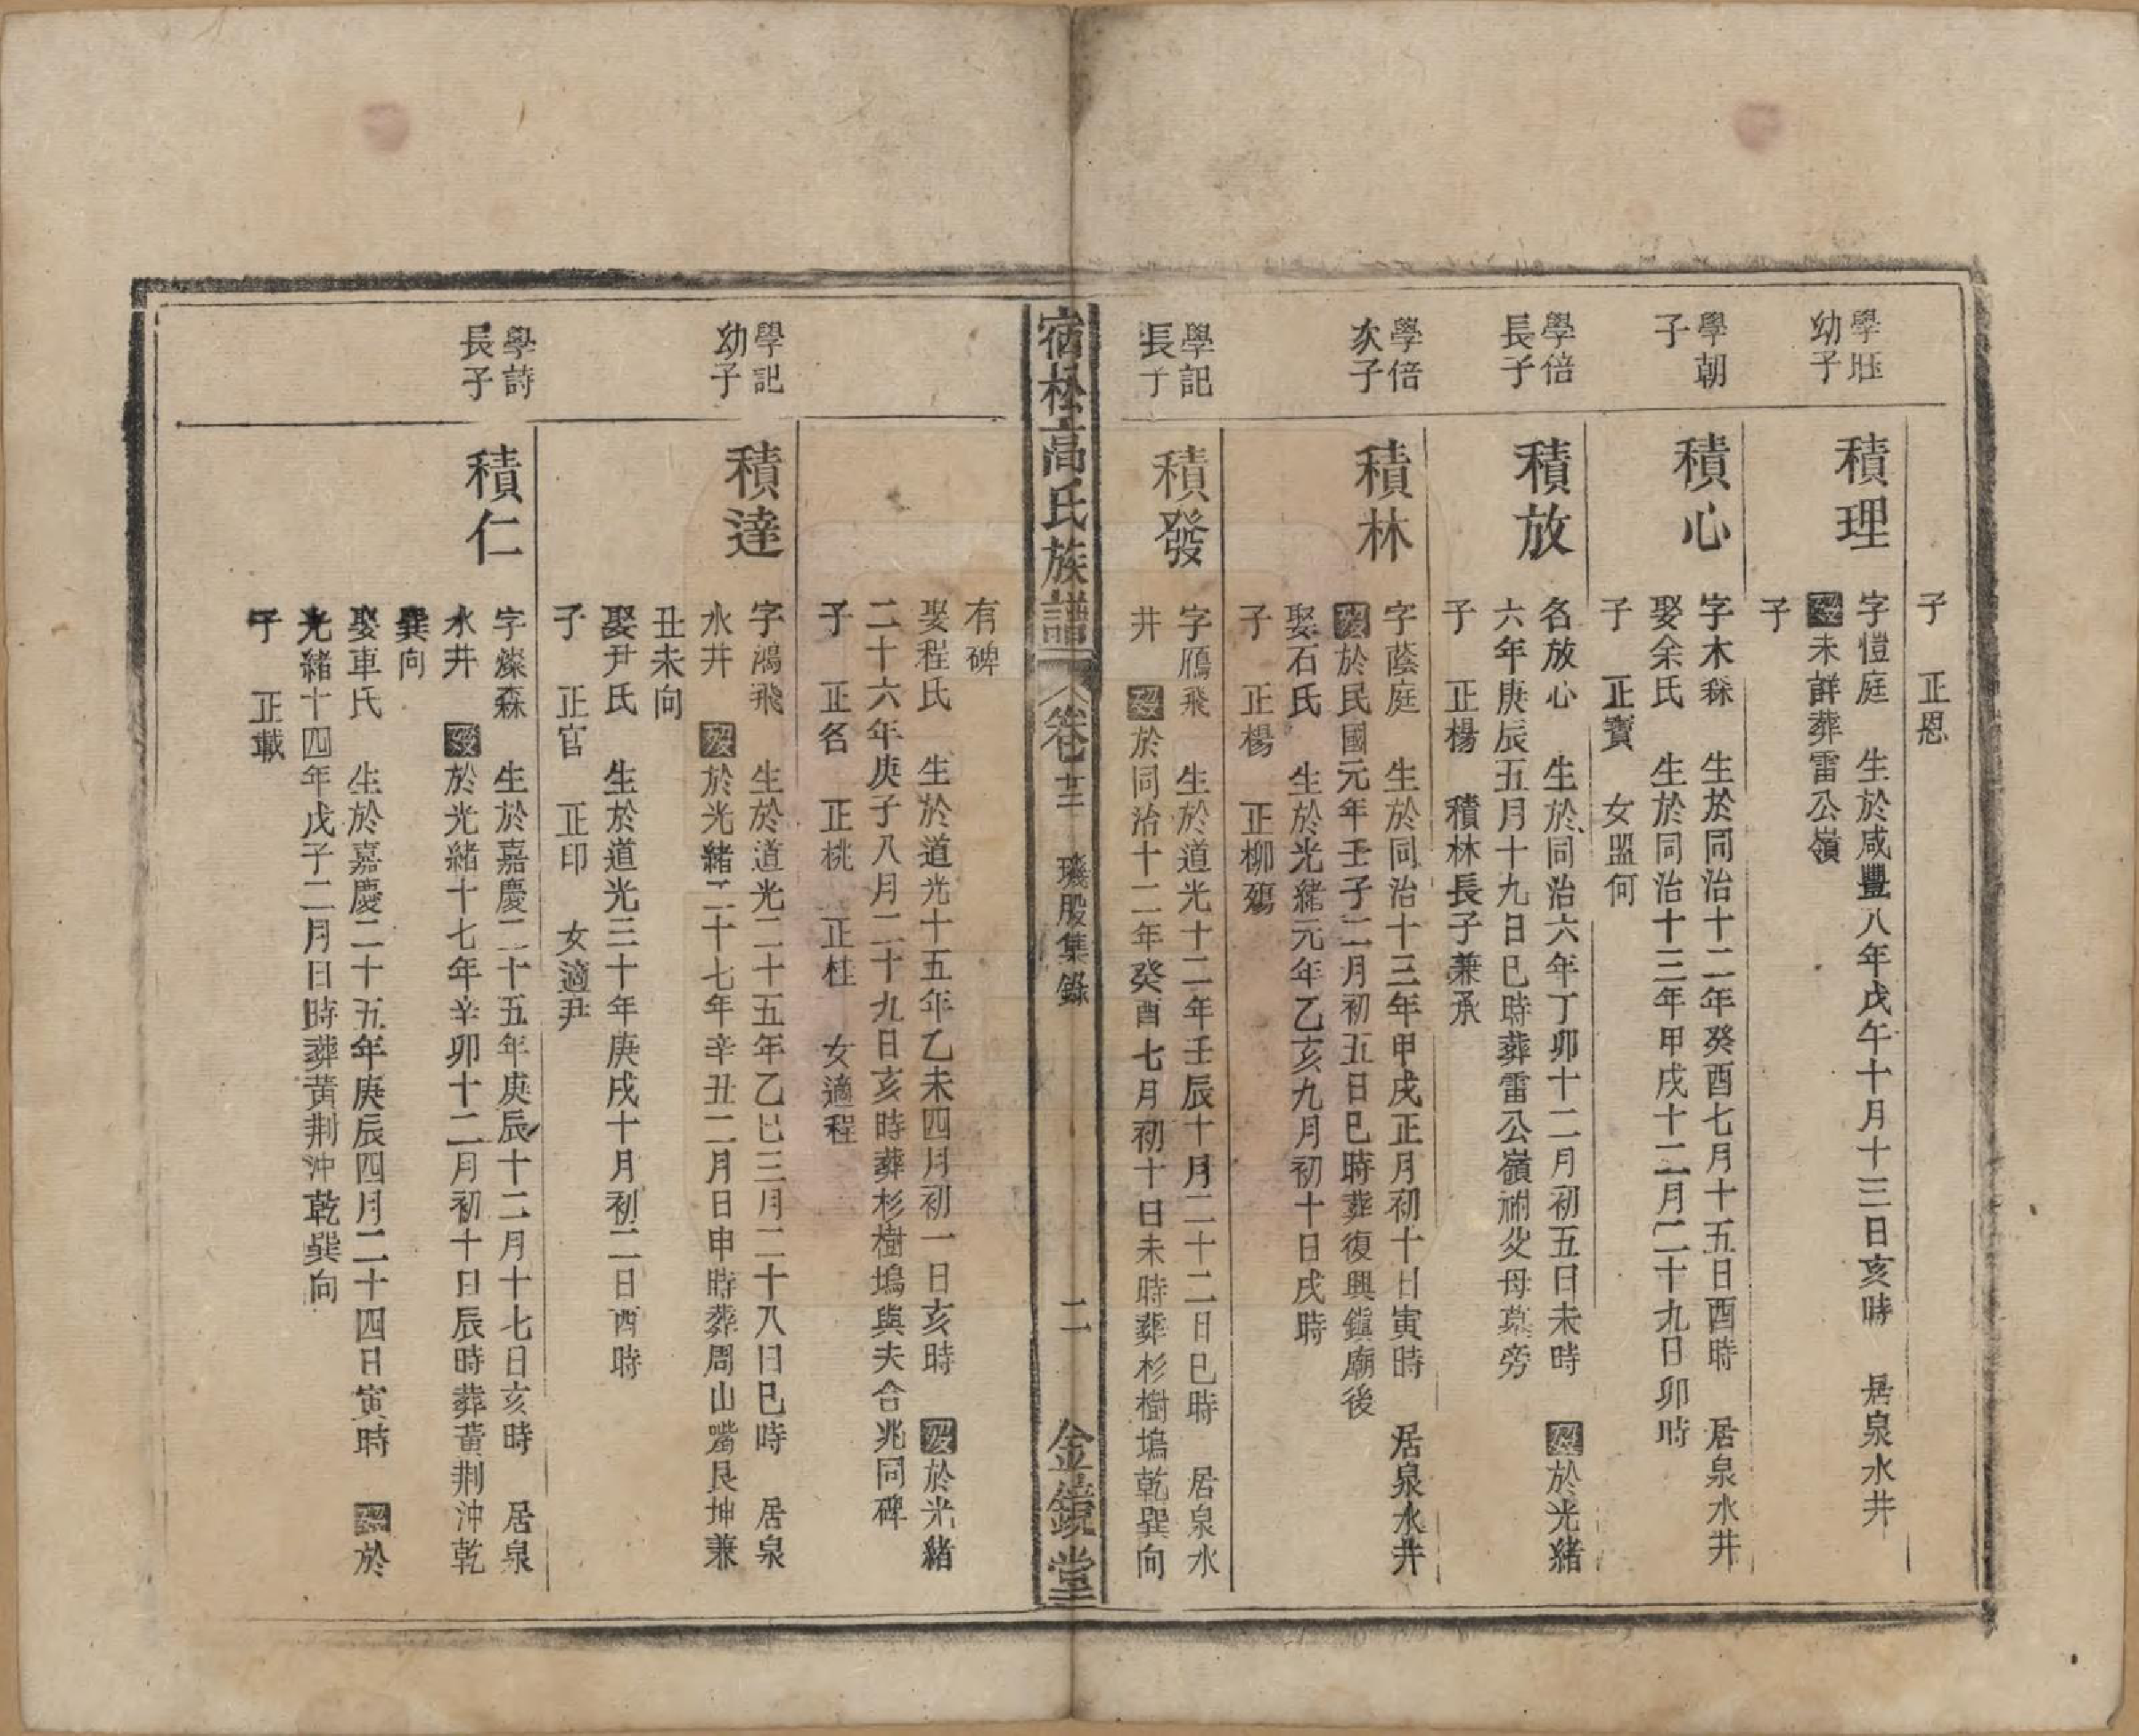 子　正恩
學
幼子
積理
字愷庭　生於咸豐八年戊午十月十三日亥時　居泉水井
歿未詳葬雷公嶺
子
學朝
子
積心
字木森　生於同治十二年癸酉七月十五日酉時　居泉水井
娶余氏　生於同治十三年甲戌十二月二十九日卯時
子　正寶　女盟何
學倍
長子
積放
名放心　生於同治六年丁卯十二月初五日未時　歿於光緒
六年庚辰五月十九日巳時葬雷公嶺祔父母墓旁
子　正楊　積林長子兼承
學倍
次子
積林
字蔭庭　生於同治十三年甲戌正月初十日寅時　居泉水井
歿於民國元年壬子二月初五日巳時葬復興鎮廟後
娶石氏　生於光緒元年乙亥九月初十日戌時
子　正楊　正柳殤
學記
長子
積發
字鴈飛　生於道光十二年壬辰十月二十二日巳時　居泉水
井　歿於同治十二年癸酉七月初十日未時葬杉樹塢乾巽向
宿松高氏族譜　卷廿三　璣股集錄　二　金鏡堂
有碑
娶程氏　生於道光十五年乙未四月初一日亥時　歿於光緒
二十六年庚子八月二十九日亥時葬杉樹塢與夫合兆同碑
子　正名　正桃　正桂　女適程
學記
幼子
積達
字鴻飛　生於道光二十五年乙巳三月二十八日巳時　居泉
水井　歿於光緒二十七年辛丑二月日申時葬周山嘴艮坤兼
丑未向
娶尹氏　生於道光三十年庚戌十月初二日酉時
子　正官　正印　女適尹
學詩
長子
積仁
字燦森　生於嘉慶二十五年庚辰十二月十七日亥時　居泉
水井　歿於光緒十七年辛卯十二月初十日辰時葬黃荆沖乾
巽向
娶車氏　生於嘉慶二十五年庚辰四月二十四日寅時　歿於
光緒十四年戊子二月日時葬黃荆沖乾巽向
子　正載